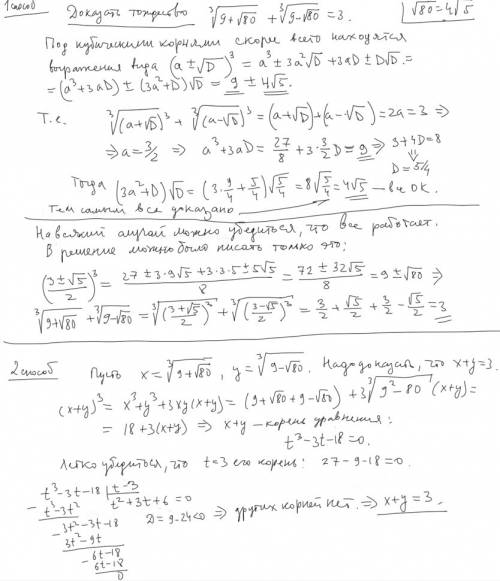 1 способ
Доказать тождество ∛(9+√80) + ∛(9-√80) = 3. | √80 = 4√5
Под кубическими корнями скорее всего находятся
выражения вида (a ± √D)³ = a³ ± 3a²√D + 3aD ± D√D =
= (a³+3aD) ± (3a²+D)√D = 9 ± 4√5.
Т.е. ∛(a+√D)³ + ∛(a-√D)³ = (a+√D)+(a-√D) = 2a = 3 ⇒
⇒ a = 3/2 ⇒ a³+3aD = 27/8 + 3·3/2 D = 9 ⇒ 3+4D=8
⇓
D = 5/4
Тогда (3a²+D)√D = (3·9/4 + 5/4)√(5/4) = 8√(5/4) = 4√5 – все ОК.
Тем самым все доказано
На всякий случай можно убедиться, что все работает.
В решение можно было писать только это:
((3±√5)/2)³ = (27 ± 3·9√5 + 3·3·5 ± 5√5)/8 = (72 ± 32√5)/8 = 9 ± √80 ⇒
∛(9+√80) + ∛(9-√80) = ∛((3+√5)/2)³ + ∛((3-√5)/2)³ = 3/2 + √5/2 + 3/2 - √5/2 = 3
2 способ
Пусть x = ∛(9+√80), y = ∛(9-√80). Надо доказать, что x+y=3.
(x+y)³ = x³+y³+3xy(x+y) = (9+√80+9-√80) + 3∛(9²-80) (x+y) =
= 18+3(x+y) ⇒ x+y – корень уравнения:
t³-3t-18=0.
Легко убедиться, что t=3 его корень: 27-9-18=0.
t³-3t-18 | t-3
- t³-3t² t²+3t+6=0
3t²-3t-18 D=9-24<0 ⇒ других корней нет. ⇒ x+y=3.
- 3t²-9t
6t-18
- 6t-18
0